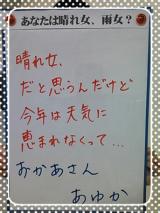 あなたは晴れ女、雨女？
晴れ女、
だと思うんだけど
今年は天気に
恵まれなくって…
おかあさん
あゆか